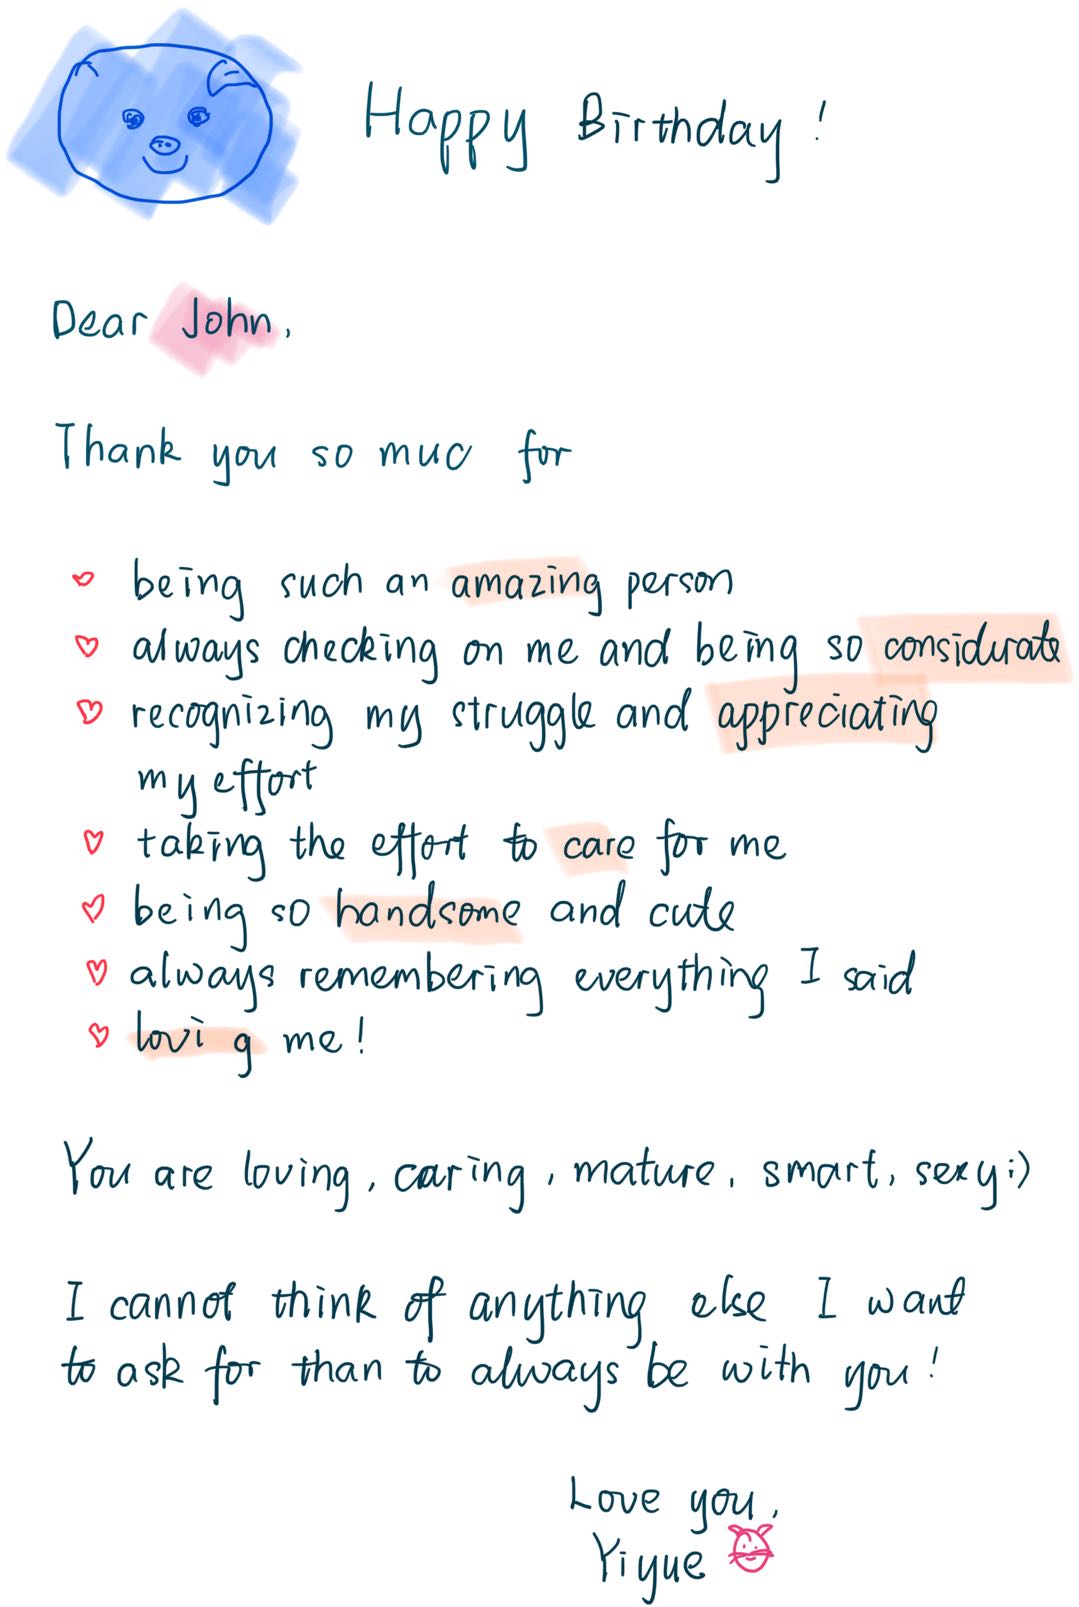 Happy Birthday!
Dear John,
Thank you so muc for
being such an amazing person
always checking on me and being so considerate
recognizing my struggle and appreciating
my effort
taking the effort to care for me
being so handsome and cute
always remembering everything I said
lovi g me!
You are loving, caring, mature, smart, sexy;)
I cannot think of anything else I want
to ask for than to always be with you!
Love you,
Yiyue